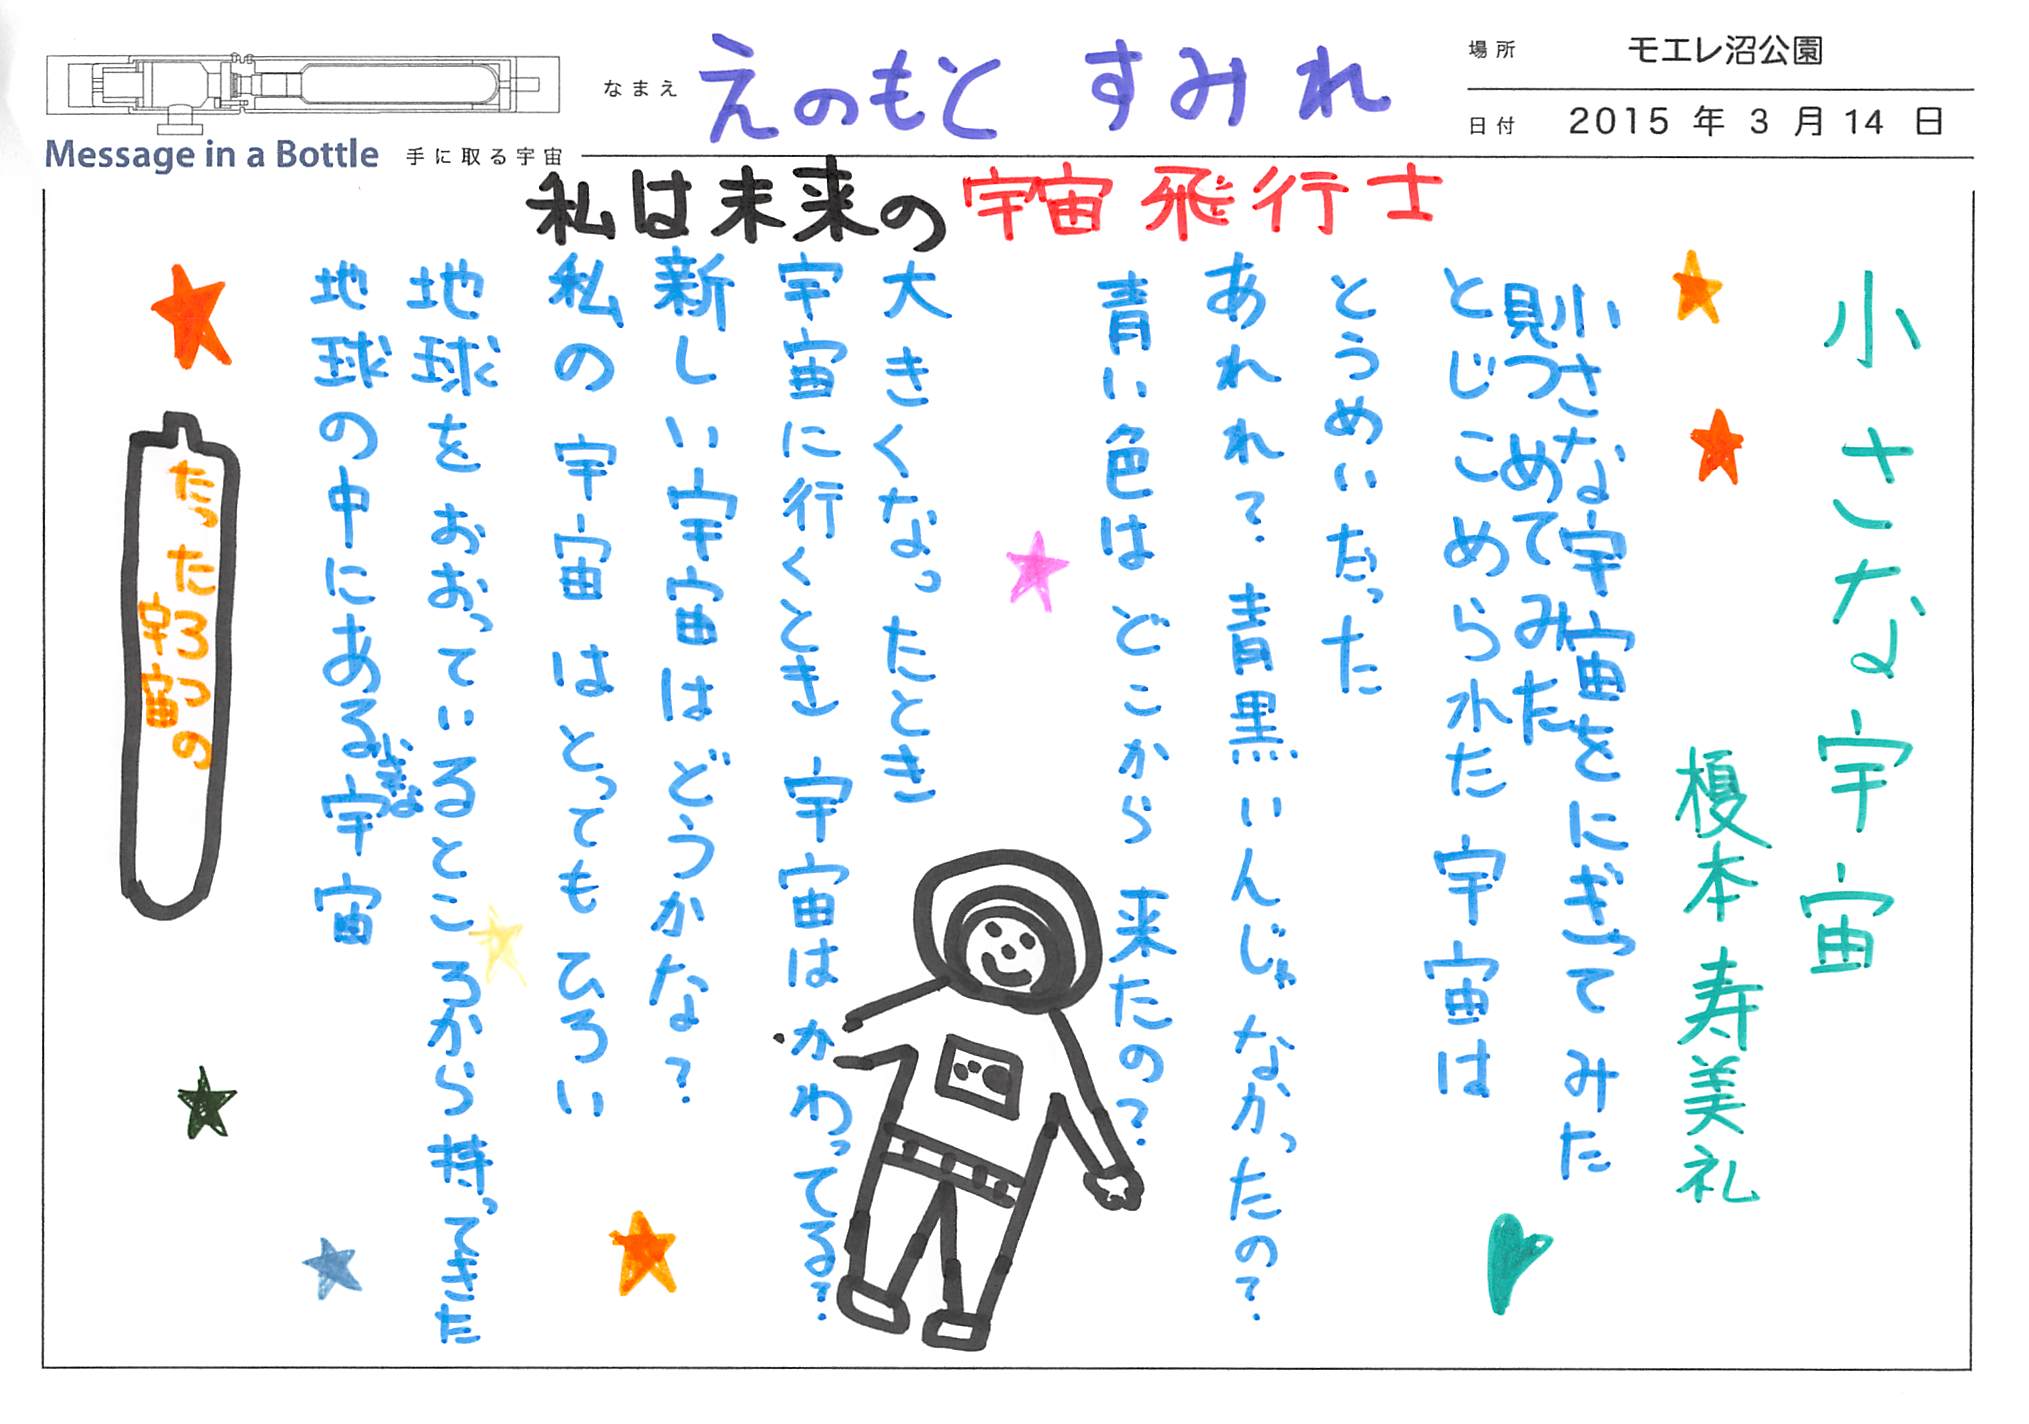 Message in a Bottle 手に取る宇宙
なまえ えのもと すみれ
場所 モエレ沼公園
日付 2015 年 3 月 14 日
私は未来の宇宙飛行士
小さな宇宙
榎本寿美礼
小さな宇宙をにぎってみた
見つめてみた
とじこめられた宇宙は
とうめいだった
あれれ？青黒いんじゃなかったの？
青い色はどこから来たの？
大きくなったとき
宇宙に行くとき宇宙はかわってる？
新しい宇宙はどうかな？
私の宇宙はとってもひろい
地球をおおっているところから持ってきた
地球の中にある小さな宇宙
たった3つの
宇宙